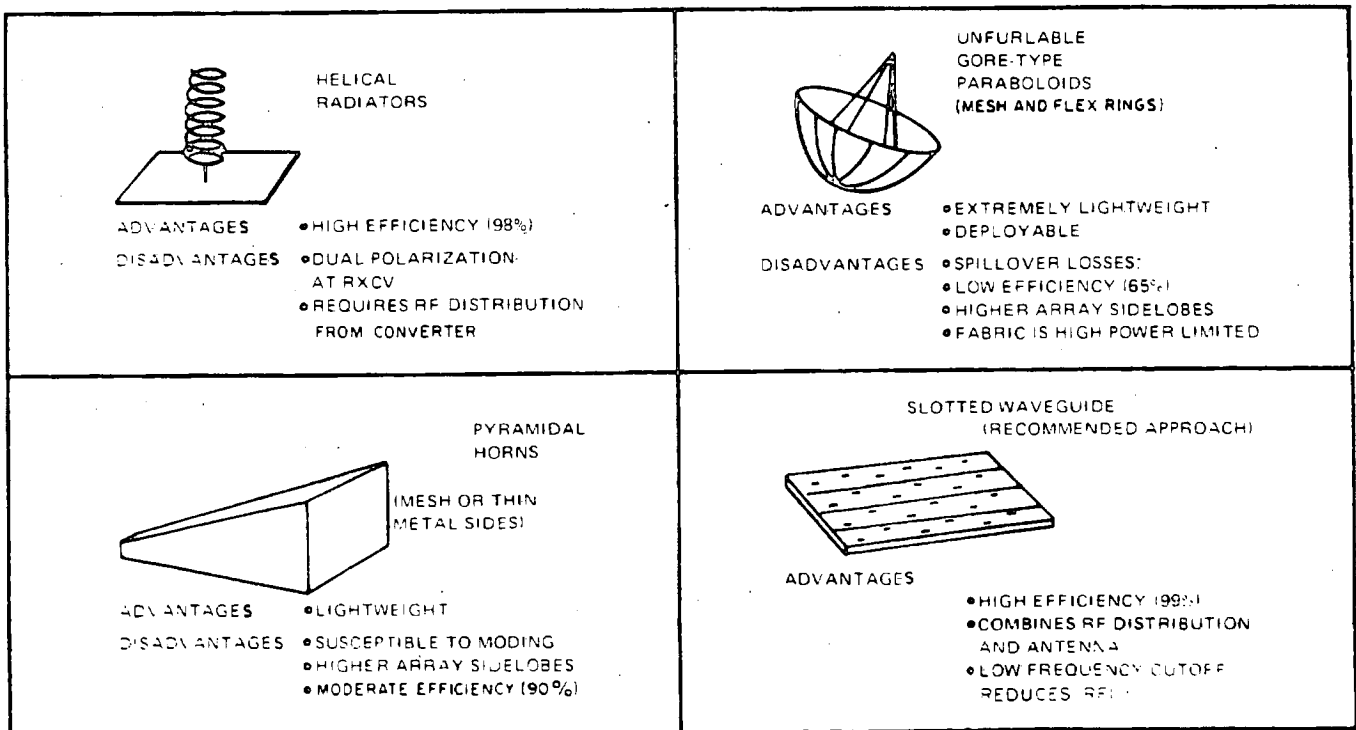 HELICAL
RADIATORS
ADVANTAGES •HIGH EFFICIENCY (98%)
DISADVANTAGES •DUAL POLARIZATION
AT RXCV
•REQUIRES RF DISTRIBUTION
FROM CONVERTER
UNFURLABLE
GORE-TYPE
PARABOLOIDS
(MESH AND FLEX RINGS)
ADVANTAGES •EXTREMELY LIGHTWEIGHT
•DEPLOYABLE
DISADVANTAGES •SPILLOVER LOSSES:
•LOW EFFICIENCY (65%)
•HIGHER ARRAY SIDELOBES
•FABRIC IS HIGH POWER LIMITED
PYRAMIDAL
HORNS
(MESH OR THIN
METAL SIDES)
ADVANTAGES •LIGHTWEIGHT
DISADVANTAGES •SUSCEPTIBLE TO MODING
•HIGHER ARRAY SIDELOBES
•MODERATE EFFICIENCY (90%)
SLOTTED WAVEGUIDE
(RECOMMENDED APPROACH)
ADVANTAGES
•HIGH EFFICIENCY (99%)
•COMBINES RF DISTRIBUTION
AND ANTENNA
•LOW FREQUENCY CUTOFF
REDUCES